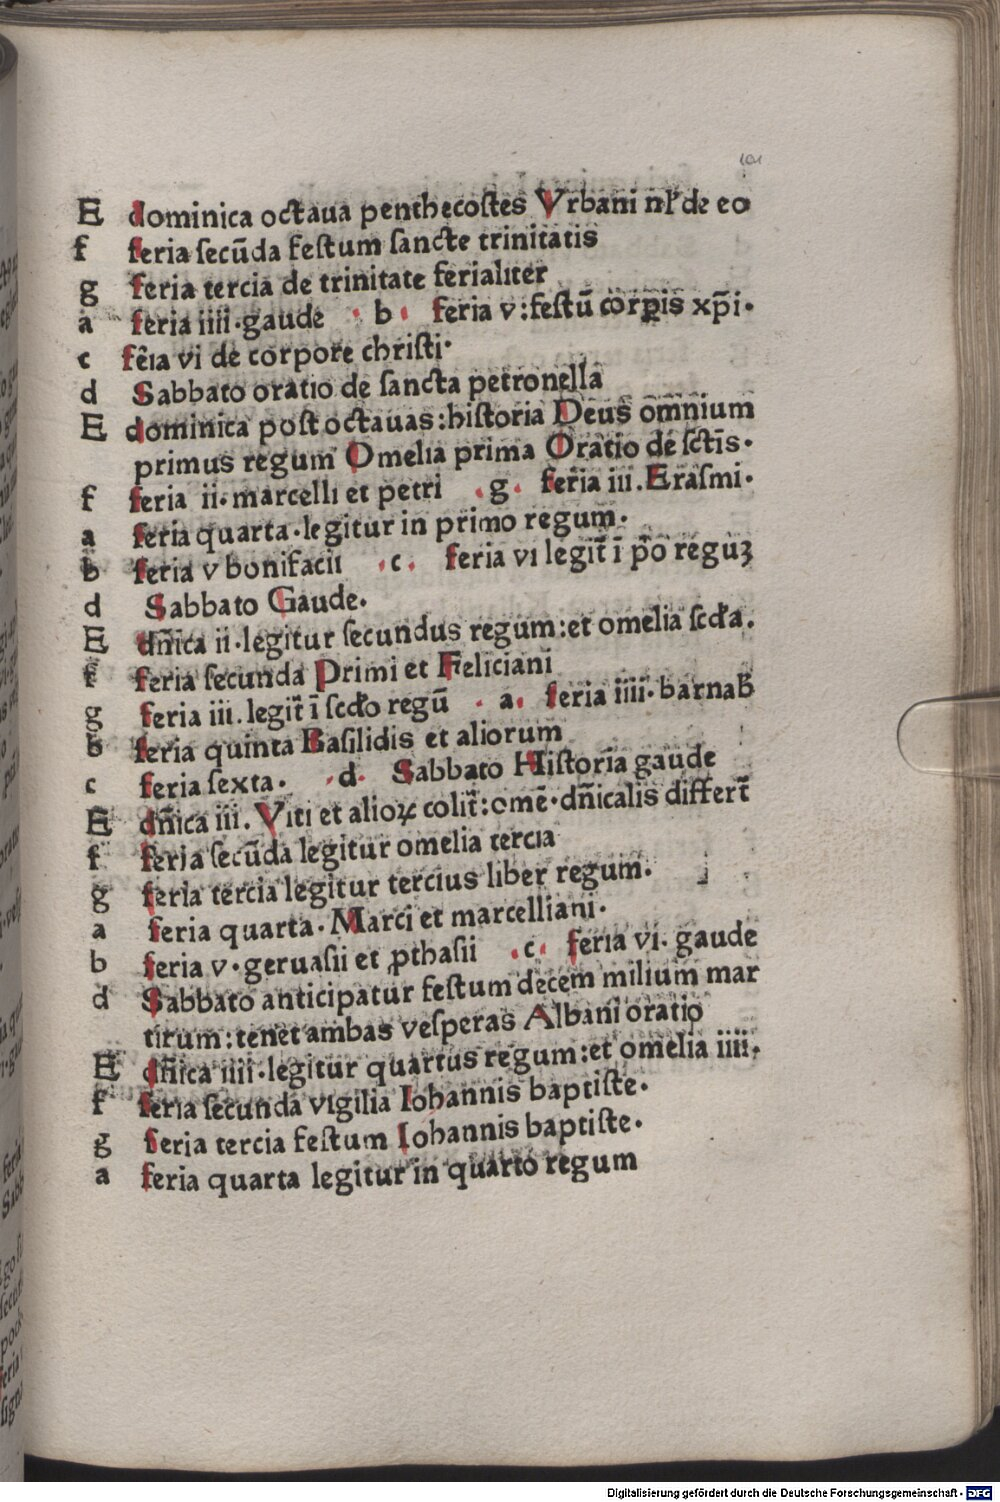 101
E dominica octaua penthecostes Vrbani nł de eo
f feria secūda festum sancte trinitatis
g feria tercia de trinitate ferialiter
a feria iiii·gaude · b · feria v:festū corꝑis xp̄i·
c fe͂ia vi de corpore christi·
d Sabbato oratio de sancta petronella
E dominica post octauas:historia Deus omnium
primus regum Omelia prima Oratio de sct̄is·
f feria ii·marcelli et petri ·g· feria iii.Erasmi·
a feria quarta·legitur in primo regum·
b feria v bonifacii ·c· feria vi legit̄ ī p̄o reguꝫ
d Sabbato Gaude·
E dn̄ica ii·legitur secundus regum:et omelia scđa.
f feria secunda Primi et Feliciani
g feria iii.legit̄ ī scđo regū · a· feria iiii·barnab̄
b feria quinta Basilidis et aliorum
c feria sexta· ·d· Sabbato Historia gaude
E dn̄ica iii. Viti et alioꝝ colit̄:omē·dn̄icalis differt̄
f feria secūda legitur omelia tercia
g feria tercia legitur tercius liber regum.
a feria quarta·Marci et marcelliani·
b feria v·geruasii et ꝓthasii ·c· feria vi· gaude
d Sabbato anticipatur festum decem milium mar
tirum:tenet ambas vesperas Albani oratio
E dn̄ica iiii·legitur quartus regum:et omelia iiii·
f feria secunda vigilia Iohannis baptiste·
g feria tercia festum Iohannis baptiste·
a feria quarta legitur in quarto regum
Digitalisierung gefördert durch die Deutsche Forschungsgemeinschaft - DFG